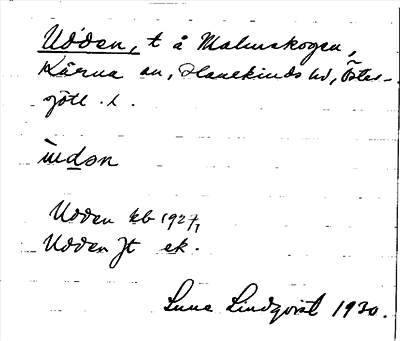 Udden, t å Malmskogen,
Kärna sn, Hanekinds hd, Öster-
götl. l.
u̇dən
Udden kb 1927,
Udden Jt ek.
Sune Lindqvist 1930.